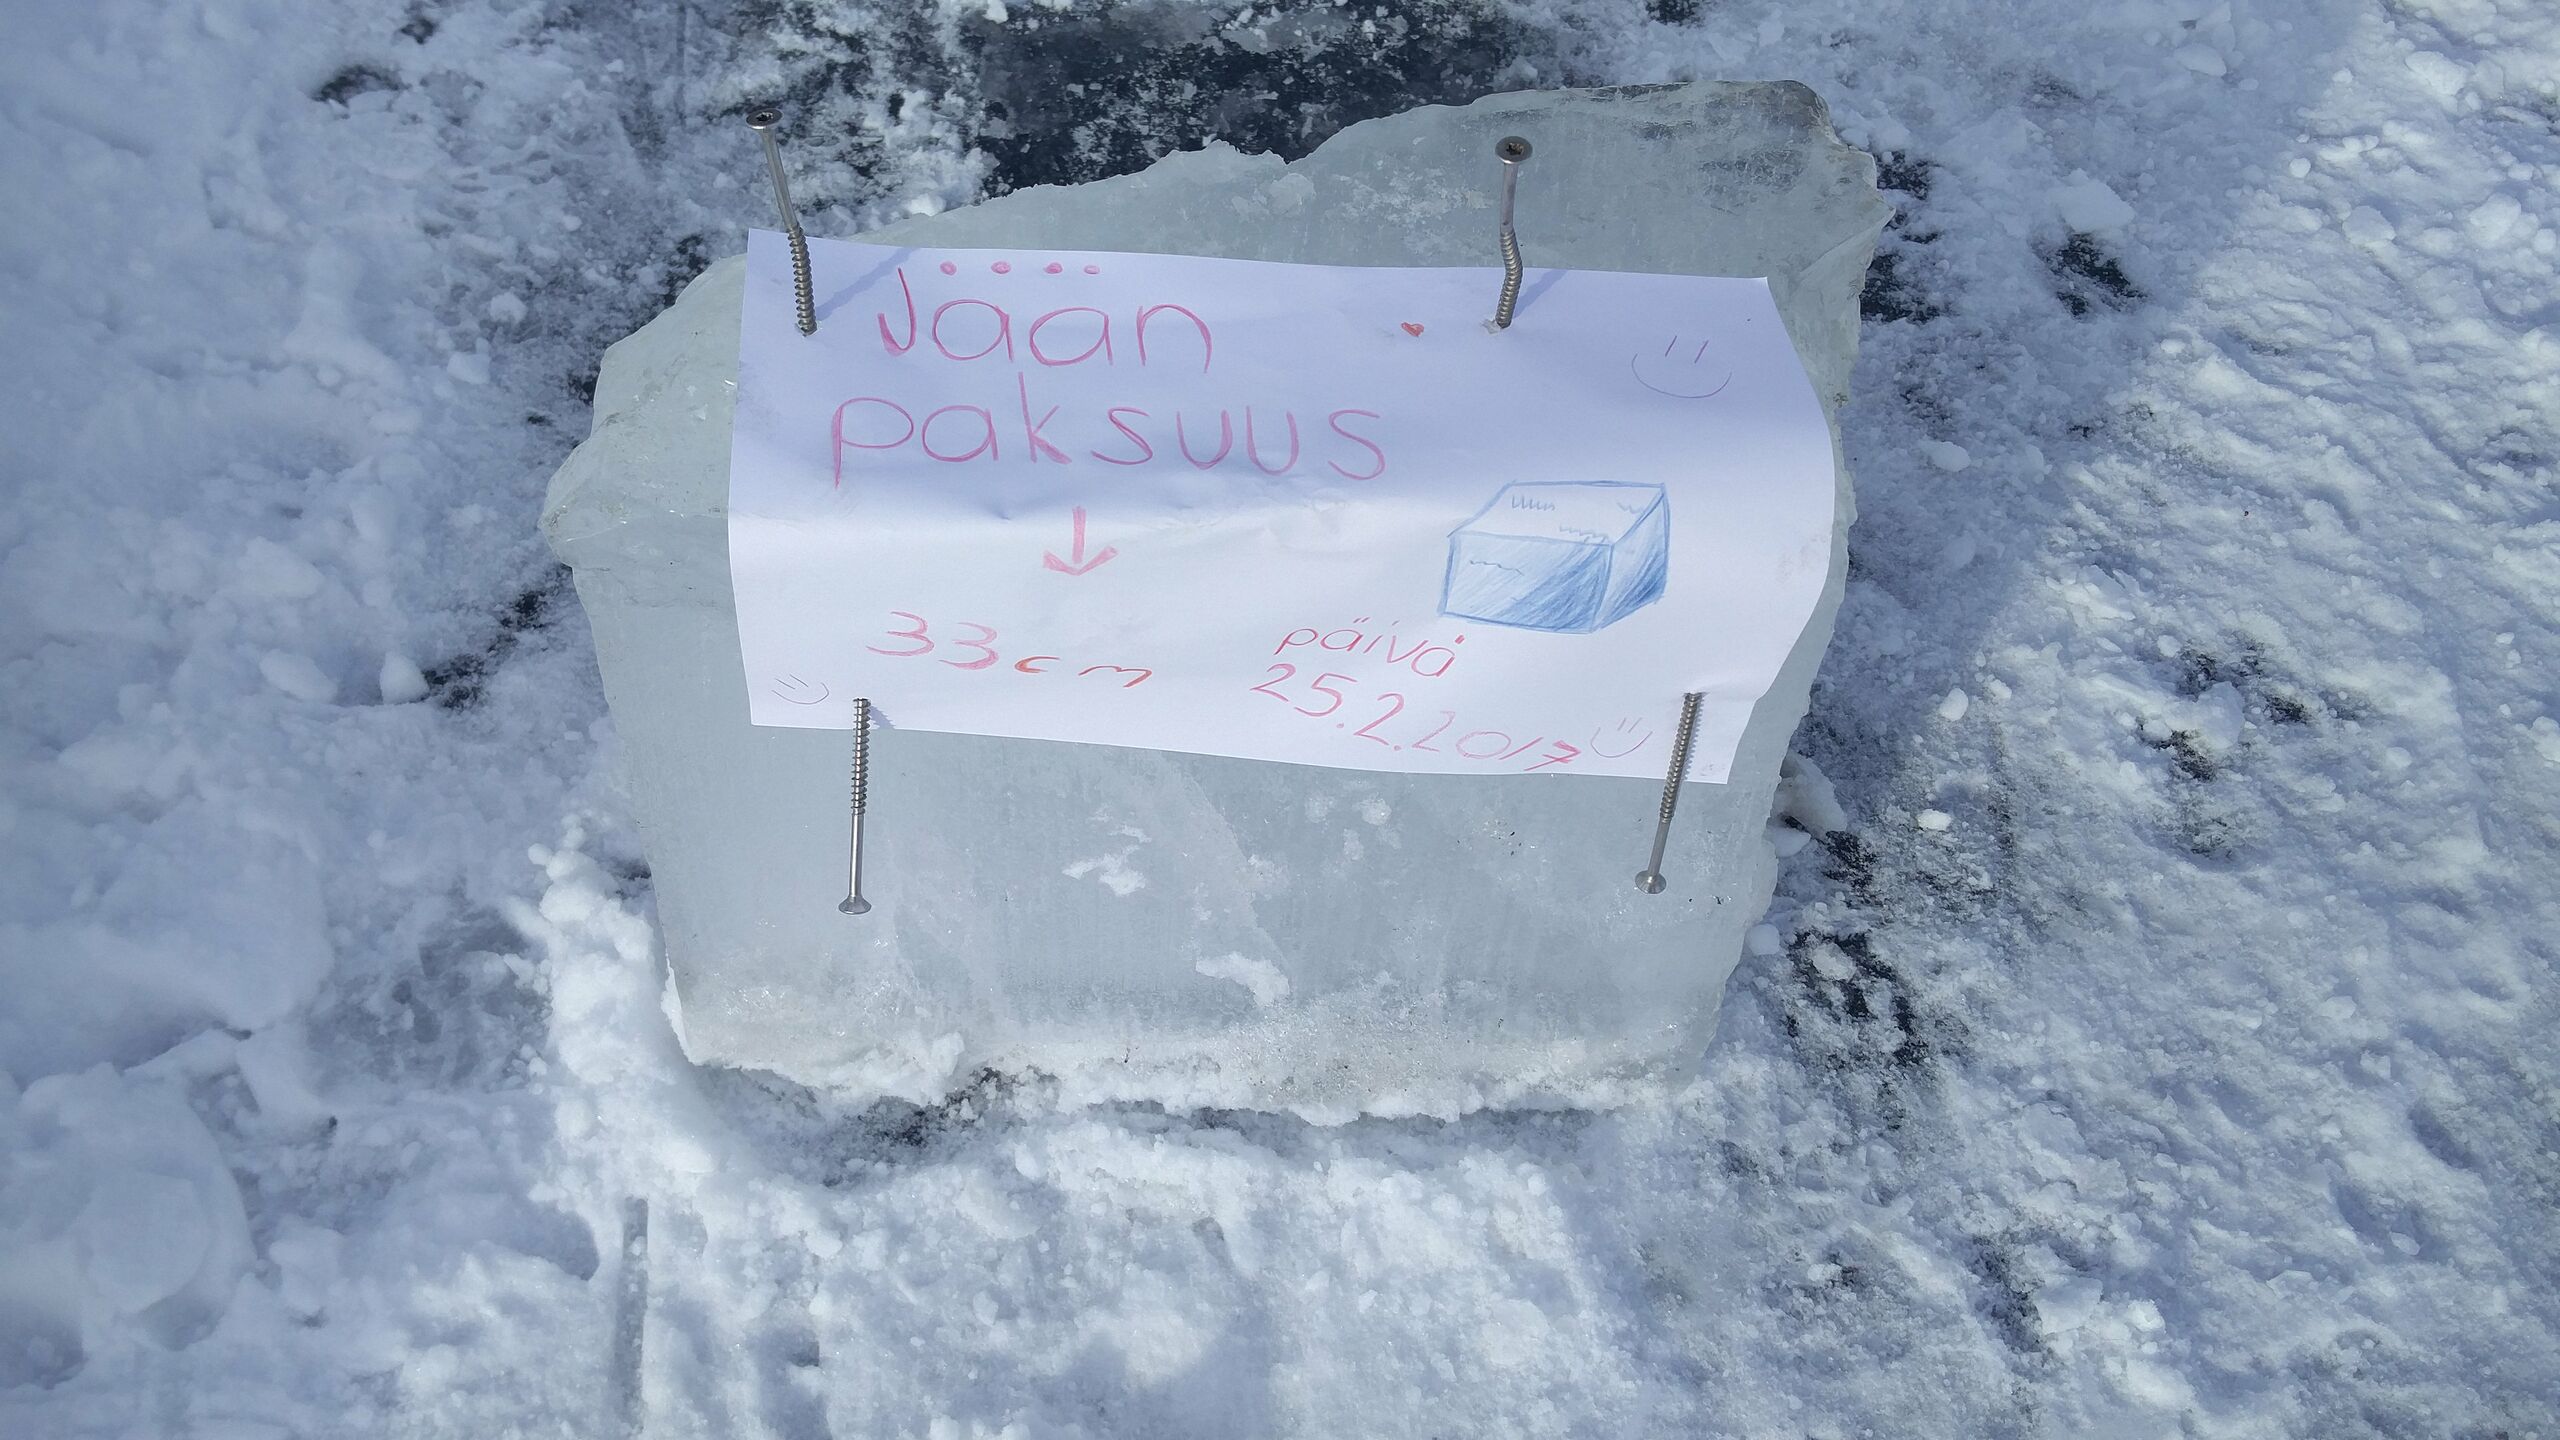 Jään
paksuus
33cm
päivä
25.2.2017